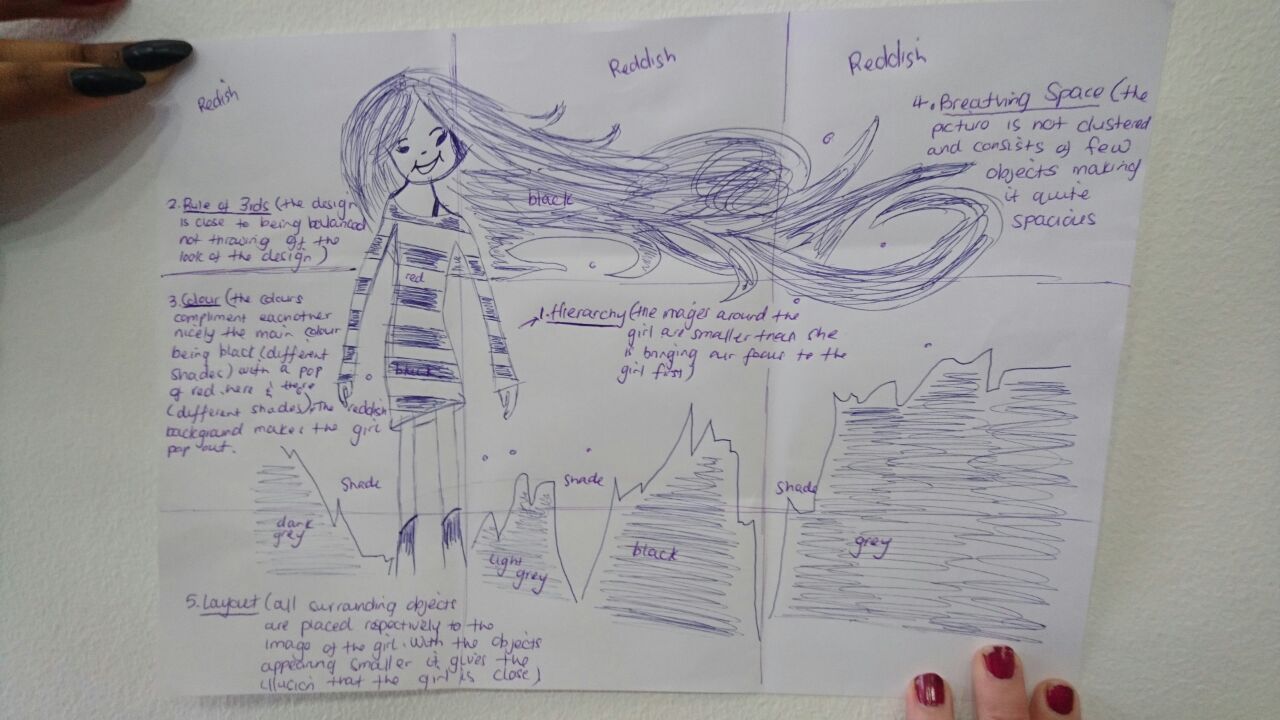 Redish
Reddish
Reddish
4. Breathing Space (the
picture is not clustered
and consists of few
objects making
it quite
spacious
black
2. Rule of 3rds (the design
is close to being balanced
not throwing off the
look of the design)
red
3. Colour (the colours
compliment eachother
nicely the main colour
being black (different
shades) with a pop
of red here & there
(different shades). The reddish
background makes the girl
pop out.
black
1. Hierarchy (the mages around the
girl are smaller than she
is bringing our focus to the
girl first)
shade
shade
shade
dark
grey
light
grey
black
grey
5. Layout (all surrounding objects
are placed respectively to the
image of the girl. With the objects
appearing smaller it gives the
illusion that the girl is close)